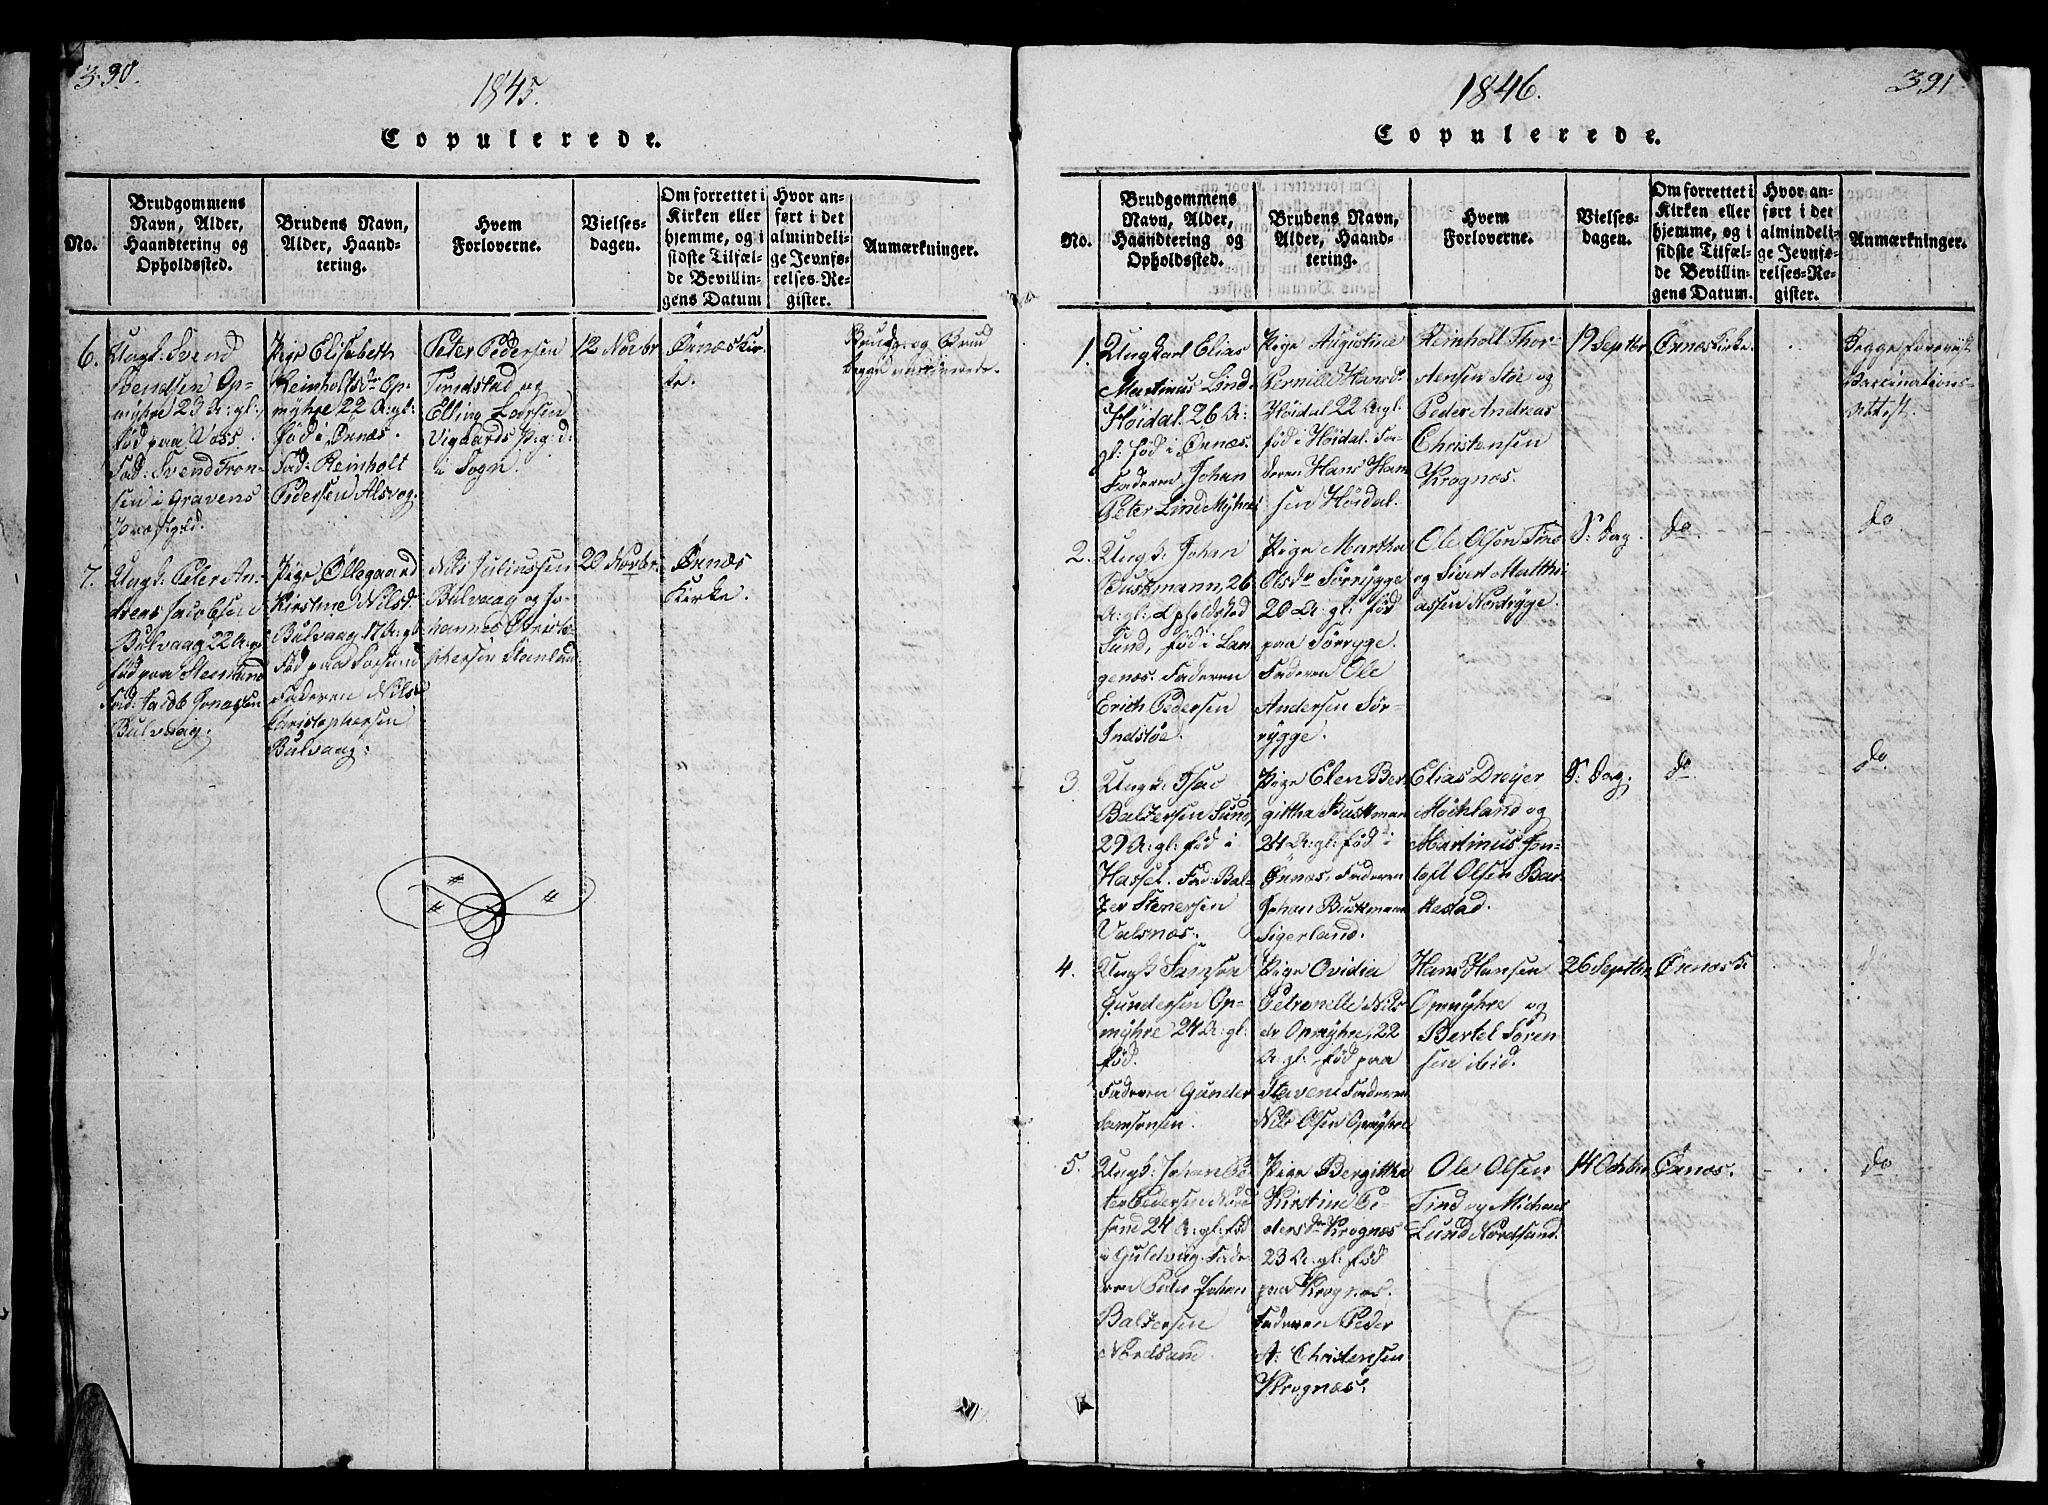 390.
1845.
Copulerede.
No.
Brudgommens
Navn, Alder,
Haandtering og
Opholdssted.
Brudens Navn,
Alder, Haand-
tering.
Hvem
Forloverne.
Vielses-
dagen.
Om forrettet i
Kirken eller
hjemme, og i
sidste Tilfæl-
de Bevillin-
gens Datum
Hvor an-
ført i det
almindeli-
ge Jevnfø-
relses-Re-
gister.
Anmærkninger.
6.
Ungk: Svend
Bendsen Op-
myhre 23 A: gl:
fød paa Voss.
Fad: Svend Tron-
sen i Gravens
Præstgjeld.
Pige Elisabeth
Reinholtsdr Op-
myhre 22 A: gl:
fød i Ønnæs.
Fad: Reinholt
Pedersen Alsvog.
Peter Pedersen
Tundstad og
Elling Larsen
Vigdals P.g.d:
i Sogn.
12 Novbr
Ønnæs Kir-
ke.
Brudg. og Brud
begge vaccinerede.
7.
Ungk: Peter An-
dreas Jacobsen
Bulvaag 22 A: gl
fød paa Steenland
Fad: Jacob Jonassen
Bulvaag.
Pige Øllegaard
Kirstine Nilsd.
Bulvaag 17 A: gl:
Fød paa
Faderen Nils
Christophersen
Bulvaag.
Nils Juliussen
Bulvaag og Jo-
hannes Christo-
phersen Steenland
20 Novbr.
Ønnæs
Kirke.
391
1846.
Copulerede.
No.
Brudgommens
Navn, Alder,
Haandtering og
Opholdssted.
Brudens Navn,
Alder, Haand-
tering.
Hvem
Forloverne.
Vielses-
dagen.
Om forrettet i
Kirken eller
hjemme, og i
sidste Tilfæl-
de Bevillin-
gens Datum.
Hvor an-
ført i det
almindeli-
ge Jevnfø-
relses-Re-
gister.
Anmærkninger.
1.
Ungkarl Elias
Martinus Lind
Høidal. 26 A:
gl: fød i Ønnæs.
Faderen Johan
Peter Lind Myhre
Pige Augustine
Pernille Hansd.
Høidal 22 A: gl.
fød i Høidal. Fa-
deren Hans Han-
sen Høidal.
Reinholt Thor-
stensen Støe og
Peder Andreas
Christensen
Krognæs.
19 Septbr
Ønnæs Kirke.
Begge forevist
Vaccinations-
Attest.
2.
Ungk: Johan
Buskmann, 26
A: gl: Opholdssted
Sund, fød i Lan-
genæs. Faderen
Erich Pedersen
Indstøe.
Pige Martha
Olsdr Sørrygge
20 A: gl: fød
paa Sørrygge.
Faderen Ole
Andersen Sør-
rygge.
Ole Olsen Tind
og Sivert Matthi-
assen Nordryge.
S: Dag.
do
do
3.
Ungk: Isac
Baltzersen Sund,
29 A: gl: fød i
Hassel. Fad: Bal-
tzer Stenersen
Valsnæs.
Pige Elen Ber-
gittha Buskman
24 A: gl: fød i
Ønnæs, Faderen
Johan Buskmann
Sigerland.
Elias Dreyer
Mochland og
Martinus Jen-
toft Olsen Bar-
kestad.
S: Dag.
do
do
4.
Ungk Samson
Gundersen Op-
myhre 24 A: gl:
fød.
Faderen Gunder
Samsonsen.
Pige Ovidia
Petronelle Nils-
dr Opmyhre, 22
A: gl: fød paa
Staven Faderen
Nils Olsen Opmyhre
Hans Hansen
Opmyhre og
Bertel Søren-
sen ibid.
26 Septbr
Ønnæs K.
do
5.
Ungk: Johan Pe-
ter Pedersen Nord-
sand 24 A: gl: fød
i Guldvig. Fade-
ren Peder Johan
Baltzersen
Nordsand.
Pige Bergittha
Kirstine Pe-
dersdr Krognæs
23 A: gl: fød
paa Krognæs.
Faderen Peder
A: Christensen
Krognæs.
Ole Olsen
Tind og Michael
Lund Nordsand.
14 Octobr
Ønnæs.
do